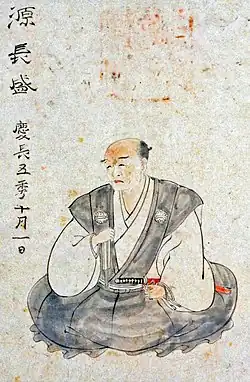 源長盛
慶長五季十月一日